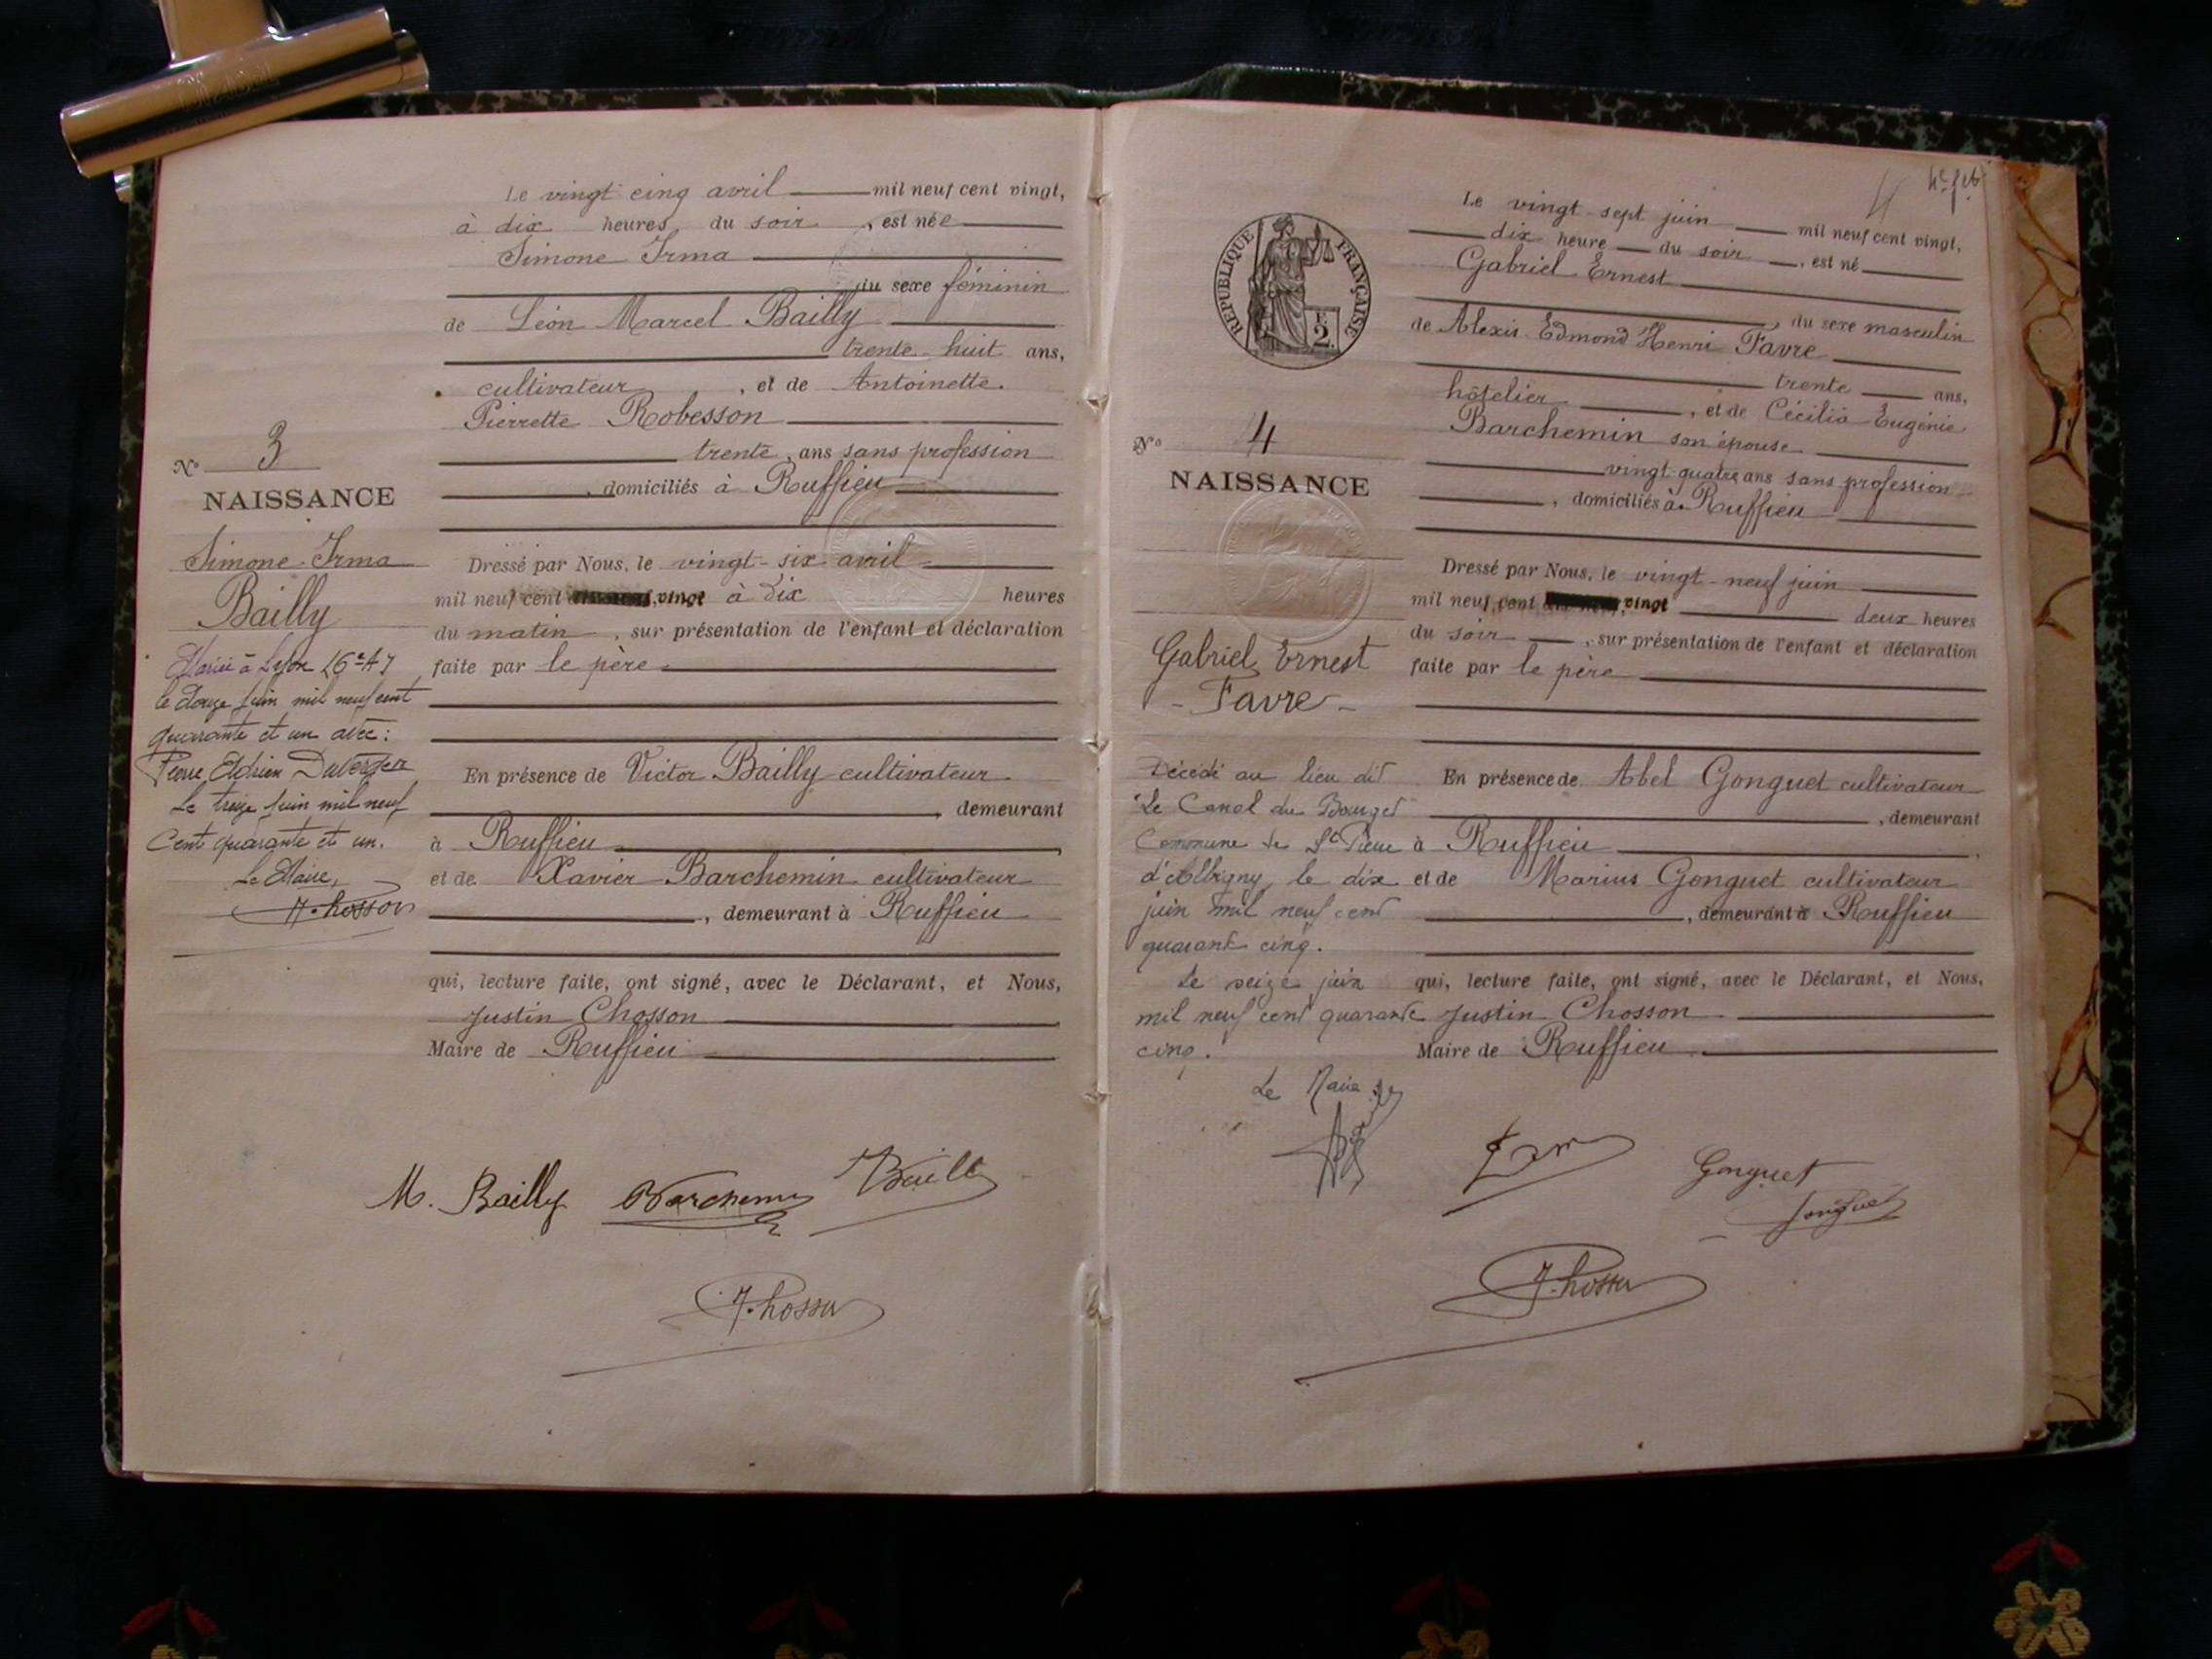 Le vingt cinq avril mil neuf cent vingt,
à dix heures du soir, est née
Simone Irma
du sexe féminin
de Léon Marcel Bailly
trente-huit ans,
cultivateur, et de Antoinette
Pierrette Robesson
trente ans sans profession
, domiciliés à Ruffieu
Dressé par Nous, le vingt-six avril
mil neuf cent vingt à dix heures
du matin, sur présentation de l'enfant et déclaration
faite par le père
En présence de Victor Bailly cultivateur
, demeurant
à Ruffieu
et de Xavier Barchemin cultivateur
, demeurant à Ruffieu
qui, lecture faite, ont signé, avec le Déclarant, et Nous,
Justin Chosson
Maire de Ruffieu
No 3
NAISSANCE
Simone Irma
Bailly
à Lyon
le douze juin mil neuf cent
quarante et un avec :
Pierre Adrien
Le treize juin mil neuf
Cent quarante et un.
Le Maire,
M. Bailly Barchemin Bailly
4
Le vingt-sept juin mil neuf cent vingt,
dix heure du soir, est né
Gabriel Ernest
, du sexe masculin
de Alexis Edmond Henri Favre
trente ans,
hôtelier, et de Cécilia Eugénie
Barchemin son épouse
vingt quatre ans sans profession
, domiciliés à Ruffieu
Dressé par Nous, le vingt-neuf juin
mil neuf cent vingt deux heures
du soir, sur présentation de l'enfant et déclaration
faite par le père
En présence de Abel Gonguet cultivateur
, demeurant
à Ruffieu
et de Marius Gonguet cultivateur
, demeurant à Ruffieu
qui, lecture faite, ont signé, avec le Déclarant, et Nous,
Justin Chosson
Maire de Ruffieu
RÉPUBLIQUE FRANÇAISE
2
No 4
NAISSANCE
Gabriel Ernest
- Favre -
Décédé au lieu dit
Le Canal du Bourget
Commune de St Pierre
d'Albigny le dix
juin mil neuf cent
quarante cinq.
Le seize juin
mil neuf cent quarante
cinq.
Le Maire
Gonguet
Gonguet